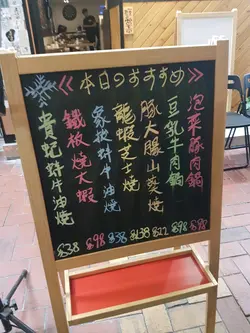 本日のおすすめ
泡菜豚肉鍋 $98
豆乳牛肉鍋 $98
豚大腸山葵燒 $22
龍蝦芝士燒 $138
象拔蚌牛油燒 $38
鐵板燒大蝦 $98
貴妃蚌牛油燒 $38